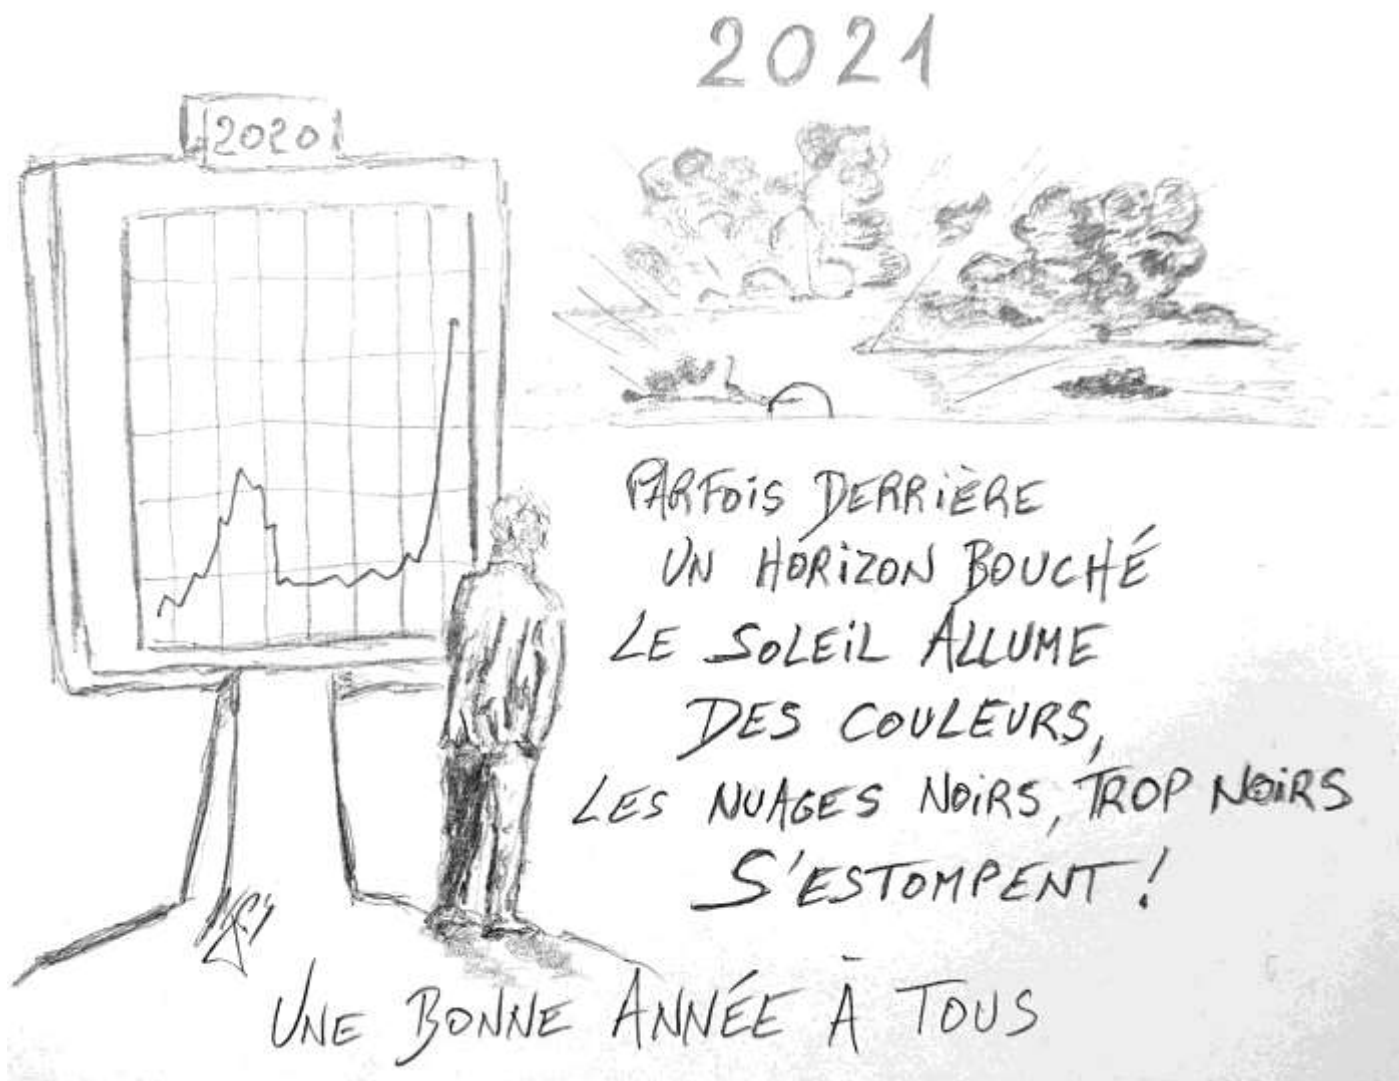 2021
2020
PARFOIS DERRIÈRE
UN HORIZON BOUCHÉ
LE SOLEIL ALLUME
DES COULEURS,
LES NUAGES NOIRS, TROP NOIRS
S'ESTOMPENT !
UNE BONNE ANNÉE À TOUS